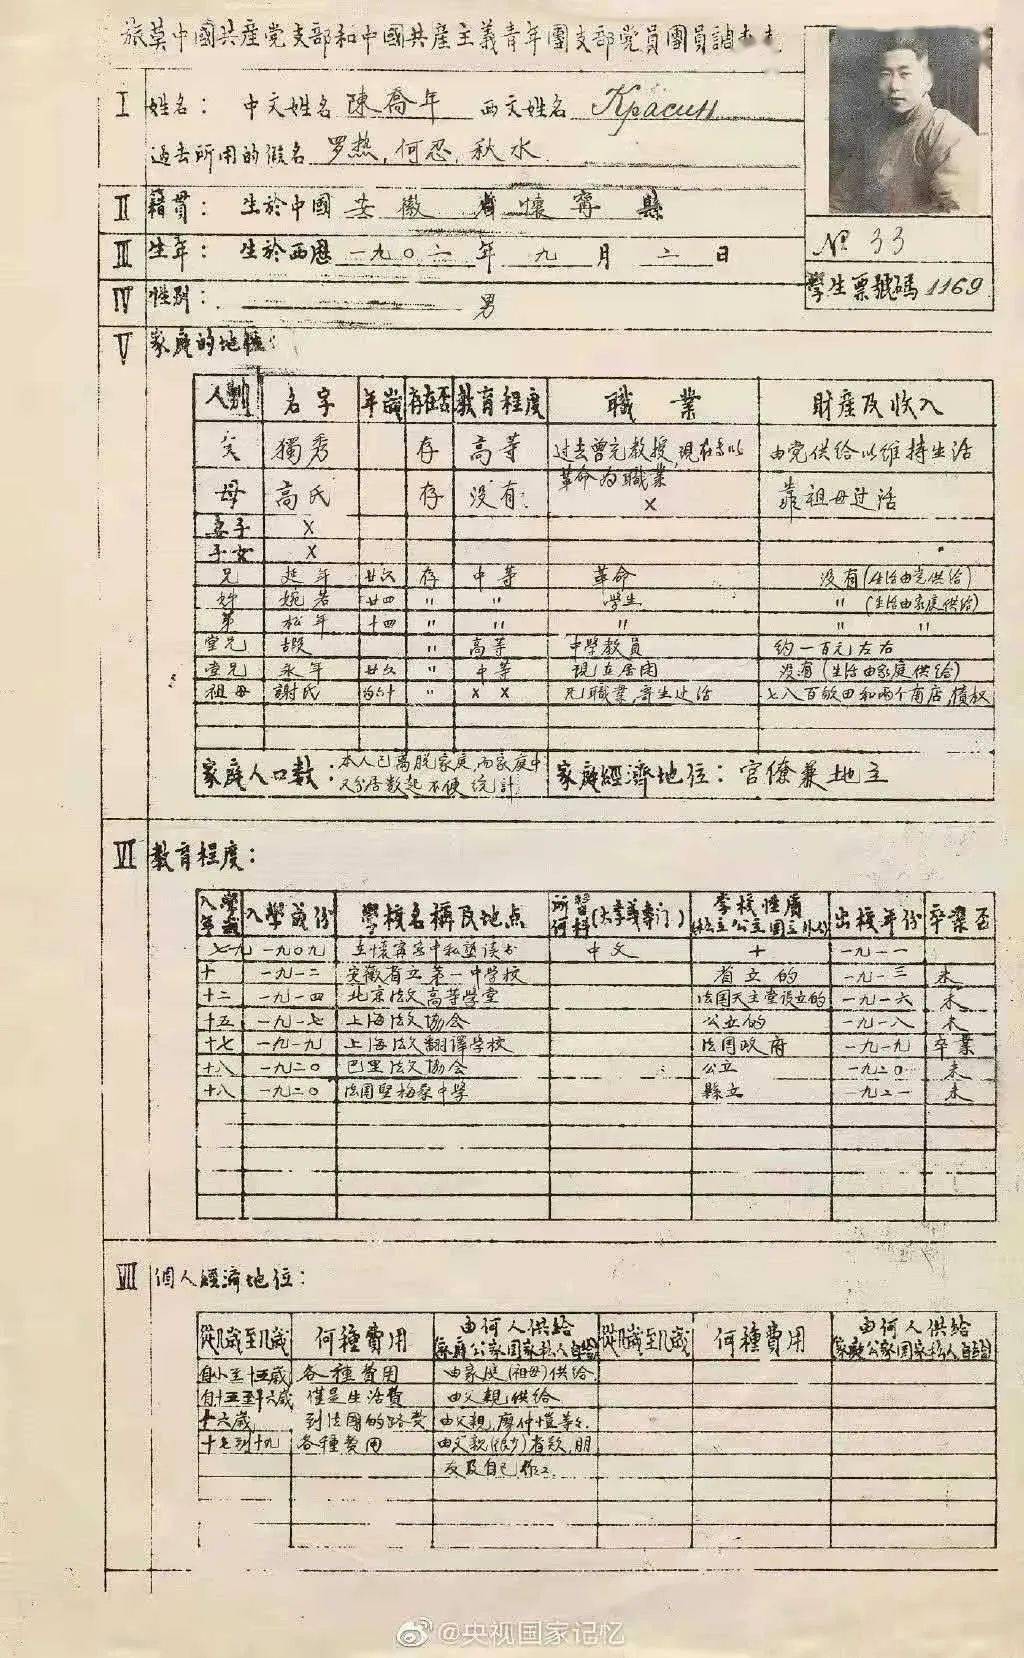 旅莫中國共產党支部和中國共產主義青年團支部党員團員調查表
I 姓名： 中文姓名 陳喬年 西文姓名 Красин
過去所用的假名 罗热，何忍，秋水
II 籍貫： 生於中國 安徽 省 懷寧 縣
III 生年： 生於西歷 一九〇二 年 九 月 二 日
№ 33
IV 性别： 男
學生票號碼 1169
V 家庭的地位：
人别 名字 年歲 存在否 教育程度 職業 財產及收入
父 獨秀 存 高等 过去曾充教授，現在系以革命为職業 由党供给以维持生活
母 高氏 存 没有 × 靠祖母过活
妻子 ×
子女 ×
兄 延年 廿六 存 中等 革命 没有（生活由党供给）
妹 婉若 廿四 〃 〃 学生 〃（生活由家庭供给）
弟 松年 十四 〃 〃 〃 〃 〃
堂兄 遐 〃 高等 中學教員 约一百元左右
堂兄 永年 廿六 〃 中等 現在居闲 没有（生活由家庭供给）
祖母 謝氏 〃 × × 无職業，寄生过活 七八百畝田和两个商店，債权
家庭人口数：本人已离脱家庭，而家庭中又分居数起不便统計 家庭經濟地位：官僚兼地主
VI 教育程度：
入學年歲 入學歲份 學校名稱及地点 所習何科（大學義專门） 學校性質（私立公立國立外人） 出校年份 卒業否
七九 一九〇九 在懷寧家中私塾读书 中文 + 一九一一
十 一九一二 安徽省立第一中学校 省立的 一九一三 未
十二 一九一四 北京法文高等学堂 法國天主堂设立的 一九一六 未
十五 一九一七 上海法文協会 公立的 一九一八 未
十七 一九一九 上海法文翻譯学校 法國政府 一九一九 卒業
十八 一九二〇 巴里法文協会 公立 一九二〇 未
十八 一九二〇 法國聖梅桑中学 縣立 一九二一 未
VII 個人經濟地位：
從几歲至几歲 何種費用 由何人供给（家庭公家国家私人自给） 從几歲至几歲 何種費用 由何人供给（家庭公家国家私人自给）
自小至十五歲 各種費用 由家庭（祖母）供给
自十五至十六歲 僅是生活費 由父親供给
十六歲 到法國的路费 由父親，廖仲愷等
十七到十九 各種费用 由父親（很少）者数，朋友及自己作工
@央视国家记忆